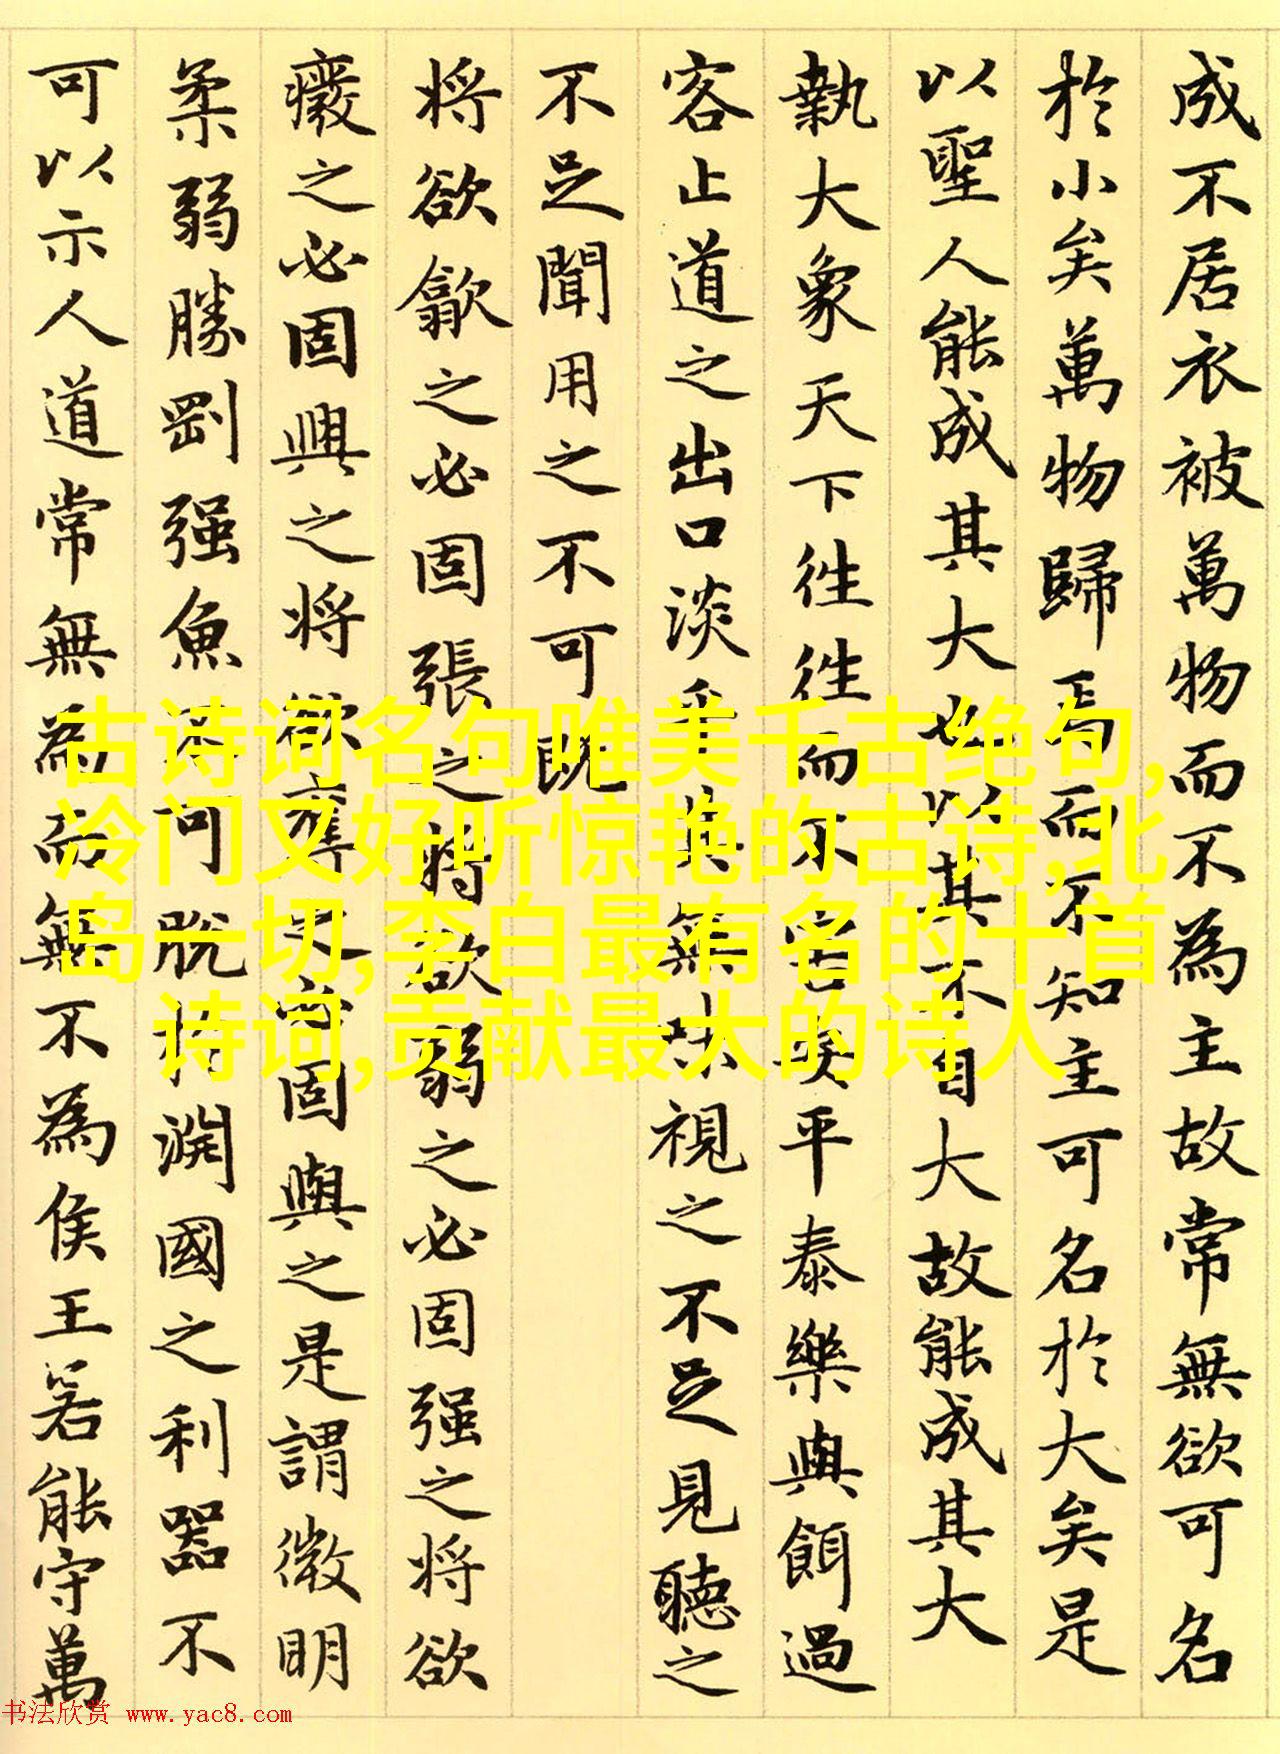 成不居衣被萬物而不為主故常無欲可名
於小矣萬物歸焉而不知主可名於大矣是
以聖人能成其大也以其不自大故能成其大
執大象天下徃徃而不害安平泰樂與餌過
客止道之出口淡乎其無味視之不足見聽之
不足聞用之不可既
将欲歙之必固張之将欲弱之必固强之将欲
癈之必固興之将欲奪之必固與之是謂微明
柔弱勝剛强魚不可脫於淵國之利器不
可以示人道常無為而無不為侯王若能守萬
古诗词名句唯美千古绝句,
冷门又好听惊艳的古诗,北
岛一切,李白最有名的十首
诗词,贡献最大的诗人
书法欣赏 www.yac8.com